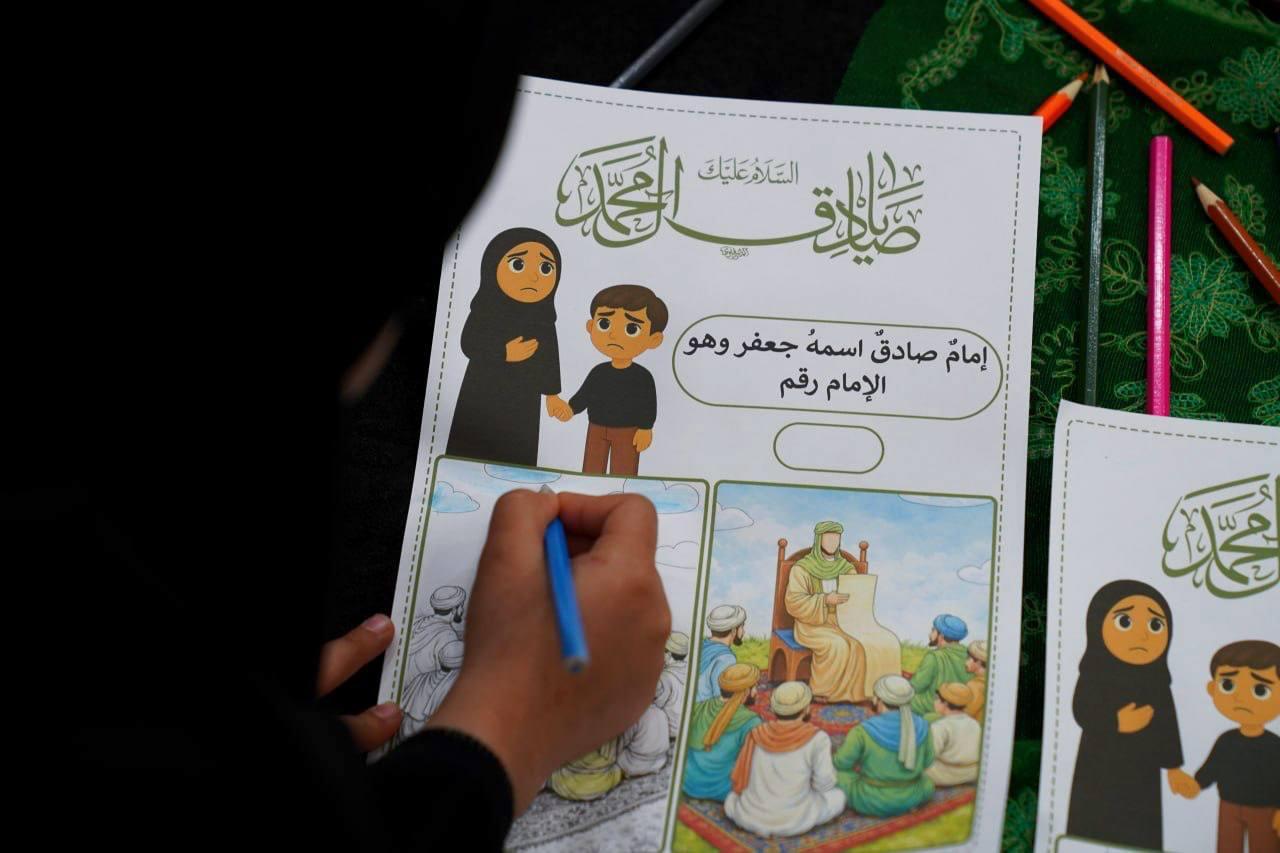 السَّلَامُ عَلَيْكَ
يَا صَادِقَ آلِ مُحَمَّد
إمامٌ صادقٌ اسمهُ جعفر وهو
الإمام رقم